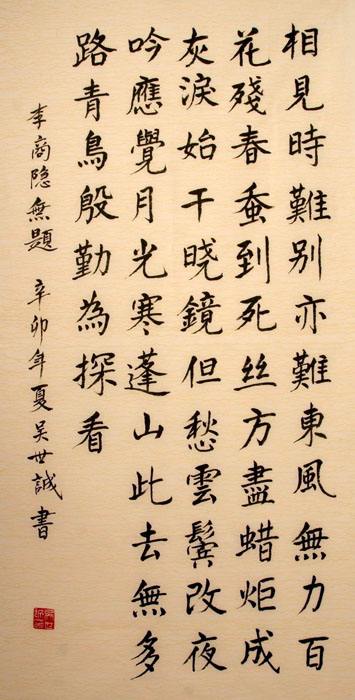 相見時難别亦難東風無力百
花殘春蚕到死丝方盡蜡炬成
灰淚始干晓鏡但愁雲鬢改夜
吟應覺月光寒蓬山此去無多
路青鳥殷勤為探看
李商隐無題 辛卯年夏吴世誠書